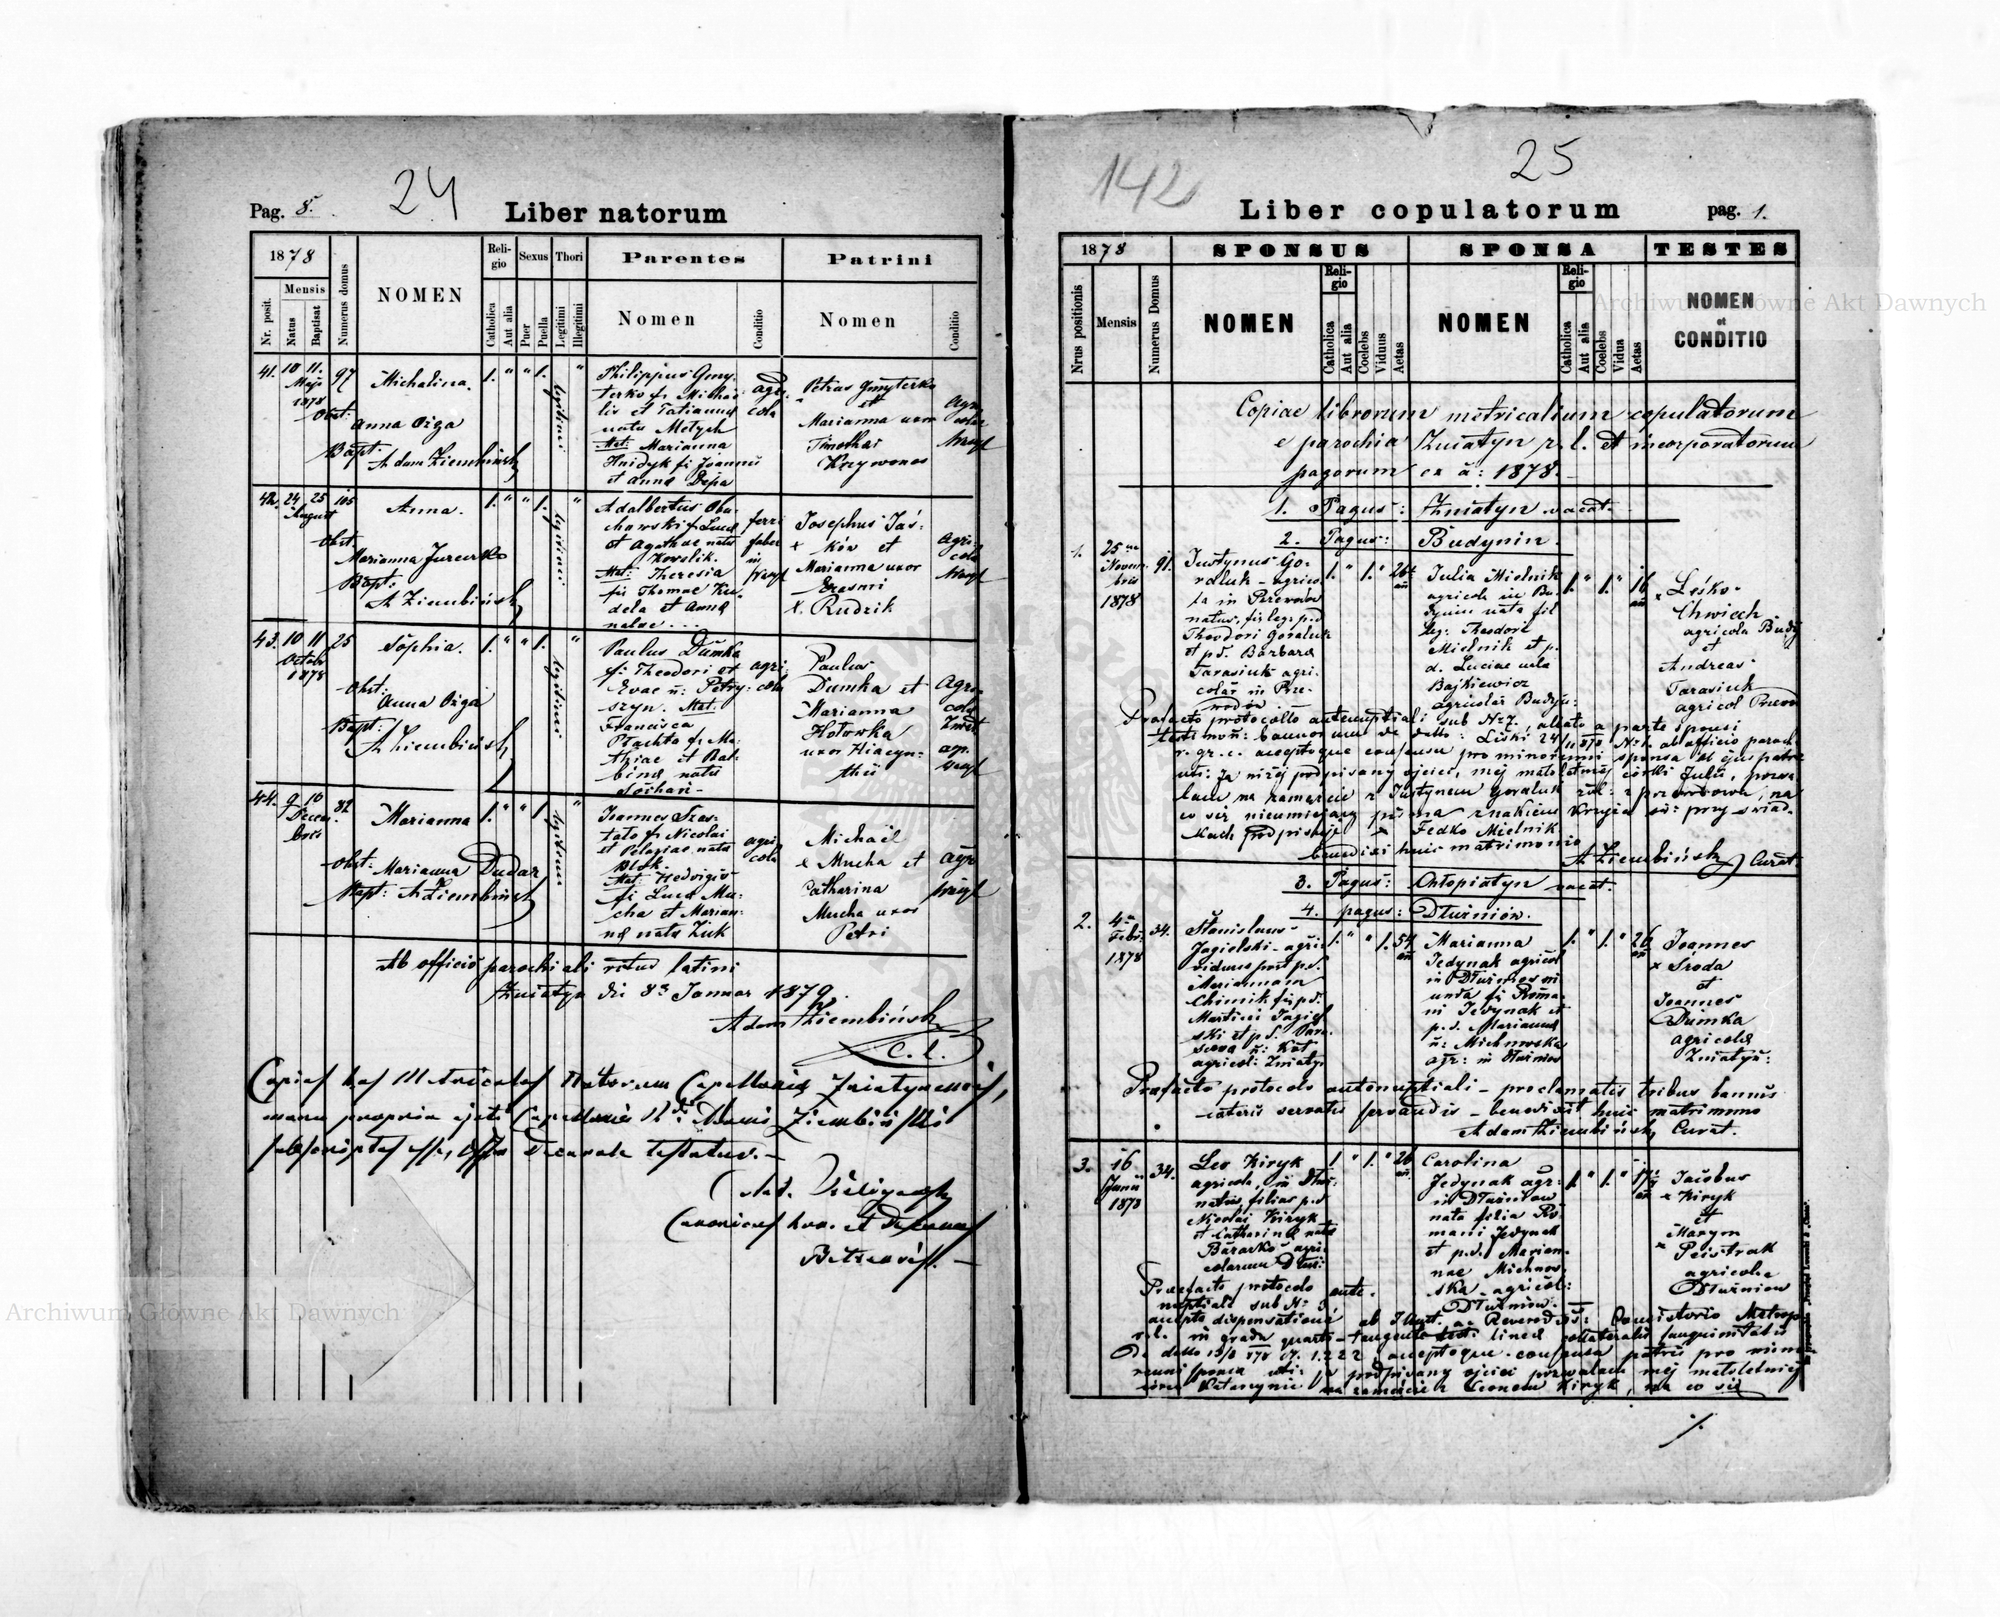 24
Pag. 8.
Liber natorum
1878
Mensis
Nr. posit.
Natus
Baptisat
Numerus domus
NOMEN
Religio
Catholica
Aut alia
Sexus
Puer
Puella
Thori
Legitimi
Illegitimi
Parentes
Nomen
Conditio
Patrini
Nomen
Conditio
41. 10 11. Maji 1878 97
Michalina.
Obst:
Anna Ożga
Bapt:
Adam Ziembiński
1. " " 1. legitimi "
Philippus Gmy-
terko f. Michae-
lis et Tatianna
nata Motych
Mat: Marianna
Hnidyk f. Joannis
et Anna Depa
agri-
cola
Petrus Gmyterko
et
Marianna uxor
Timothei
Krzywonos
42. 24 25 August 105
Anna.
Obst.
Marianna Jurenko
Bapt.
A. Ziembiński
1. " " 1. legitimi "
Adalbertus
et Agathae nata
Kowalik.
Mat: Theresia
fil Thomae Ku-
dela et Anna
natae ...
ferri
faber
in
Josephus Jaś-
+ ków et
Marianna uxor
Erasmi
+. Rudzik
Agri-
cola
43. 10 11 Octobr 1878 25
Sophia.
Obst:
Anna Ożga
Bapt:
A. Ziembiński
1. " " 1. legitimi "
Paulus Dumka
f. Theodori et
Evae n: Petry-
szyn. Mat.
Francisca
Płachta f. Ma-
thiae et Bal-
bina nata
Sochań -
agri-
cola
Paulus
Dumka et
Marianna
Hołowka
uxor Hiacyn-
thii
Agri-
cola
44. 9 10 Decem-
bris 82
Marianna
Obst: Marianna Dudar
Bapt: A. Ziembiński
1. " " 1. legitimi "
Joannes
f. Nicolai
et Pelagiae nata
Blok.
Mat: Hedvigis
f. Luca Mu-
cha et Marian-
na nata Żuk
agri-
cola
Michaël
+ Mucha et
Catharina
Mucha uxor
Petri
Ab officio parochiali ritus latini
Żniatyn die 8a Januar 1879.
Adam Ziembiński
C. l.
Copias has Metricales Natorum Capellaniae Żniatynensis,
manu propria ejati Capellani Rdi Adami Ziembiński
subscriptas esse, Offm Decanale testatur. -
Canonicus hon. et Decanus
Belzensis. -
142
25
Liber copulatorum
pag. 1.
1878
Nrus positionis
Mensis
Numerus Domus
SPONSUS
NOMEN
Religio
Catholica
Aut alia
Coelebs
Viduus
Aetas
SPONSA
NOMEN
Religio
Catholica
Aut alia
Coelebs
Vidua
Aetas
TESTES
NOMEN
et
CONDITIO
Copiae librorum metricalium copulatorum
e parochia Żniatyn r. l. et incorporatorum
pagorum ex a: 1878. -
1. Pagus: Żniatyn vacat.
2. Pagus: Budynin.
1. 25 Novem-
bris 1878 91.
Justynus Go-
raluk - agrico-
la in Przewodów
natus, fil. leg: p.d
Theodori Goraluk
et p.d. Barbara
Tarasiuk agri-
colar in Prze-
wodów.
1. " 1. " 26 an
Julia Mielnik
agricola in Bu-
dynin nata fil
leg: Theodori
Mielnik et p.
d. Luciae nata
Bajkiewicz
agricolar Budyn:
1. " 1. " 16 an
+ Leśko
Chwiech
agricola Budy
et
Andreas
Tarasiuk
agricol Przewod
Prafacto protocollo antenuptiali sub Nr 7, allato a parte sponsi
testimon: bannorum de datto: Liski 24/11 878 N. 1. ab officio paroch
r. gr. c. acceptoque consensu pro minorenni sponsa ab ejus patre
uti: Ja niżej podpisany ojciec, mej małoletniej córki Julii, pozwa-
lam na zamęście z Justynem Goraluk rol: z Przewodowa, na
co się nieumiejący pisma znakiem krzyża św: przy świad-
kach podpisuje + Fedko Mielnik
benedixi huic matrimonio
A. Ziembiński Curat.
3. Pagus: Chłopiatyn vacat.
4. pagus: Dłużniów.
2. 4 Febr: 1878 34.
Stanislaus
Jagielski - agri-
viduus post p.d.
Mariannam
Chimik fil p.d.
Martini Jagiel-
ski et p.d. Para-
sceva n: Kot
agricol: Żniatyn
1. " " 1. 54 an
Marianna
Jedynak agricol
in Dłużniów
f: Roma-
ni Jedynak et
p.d. Marianna
n: Michnowska
agr: in Dłużniow
1. " 1. " 26 an
Joannes
+ Środa
et
Joannes
Dumka
agricola
Żniatyn:
Prafacto protocolo antenuptiali - proclamatis tribus bannis
ceteris servatis servandis - benedixit huic matrimonio
Adam Ziembiński Curat.
3. 16 Junii 1878 34.
Leo Kiryk
agricola, in Dłuż-
natus filius p.d
Nicolai Kiryk
et Catharina nata
agri-
colarum Dłuż:
1. " 1. " 26 an
Carolina
Jedynak agr:
in Dłużniow
nata filia Ro-
mani Jedynak
et p.d. Marian-
nae Michnow-
ska agricol:
Dłużniow. -
1. " 1. " 17 an
Jacobus
+ Kiryk
et
Maxym
+ Peistrak
agricolae
Dłużniow
Praefacto protocolo ante-
nuptiali sub Nr 3
accepta dispensatione ab Illust. ac Reverendiss: Consistorio Metrop
r. l. in gradu quarto tangente linea collateralis sanguinitatis
De datto 13/6 878 N. 1222 acceptoque consensu patris pro mino-
renni sponsa uti: ja podpisany ojciec pozwalam mej małoletniej
córce Katarzynie na zamęście z Leonem Kiryk, na co się
./.
Archiwum Główne Akt Dawnych
Archiwum Główne Akt Dawnych